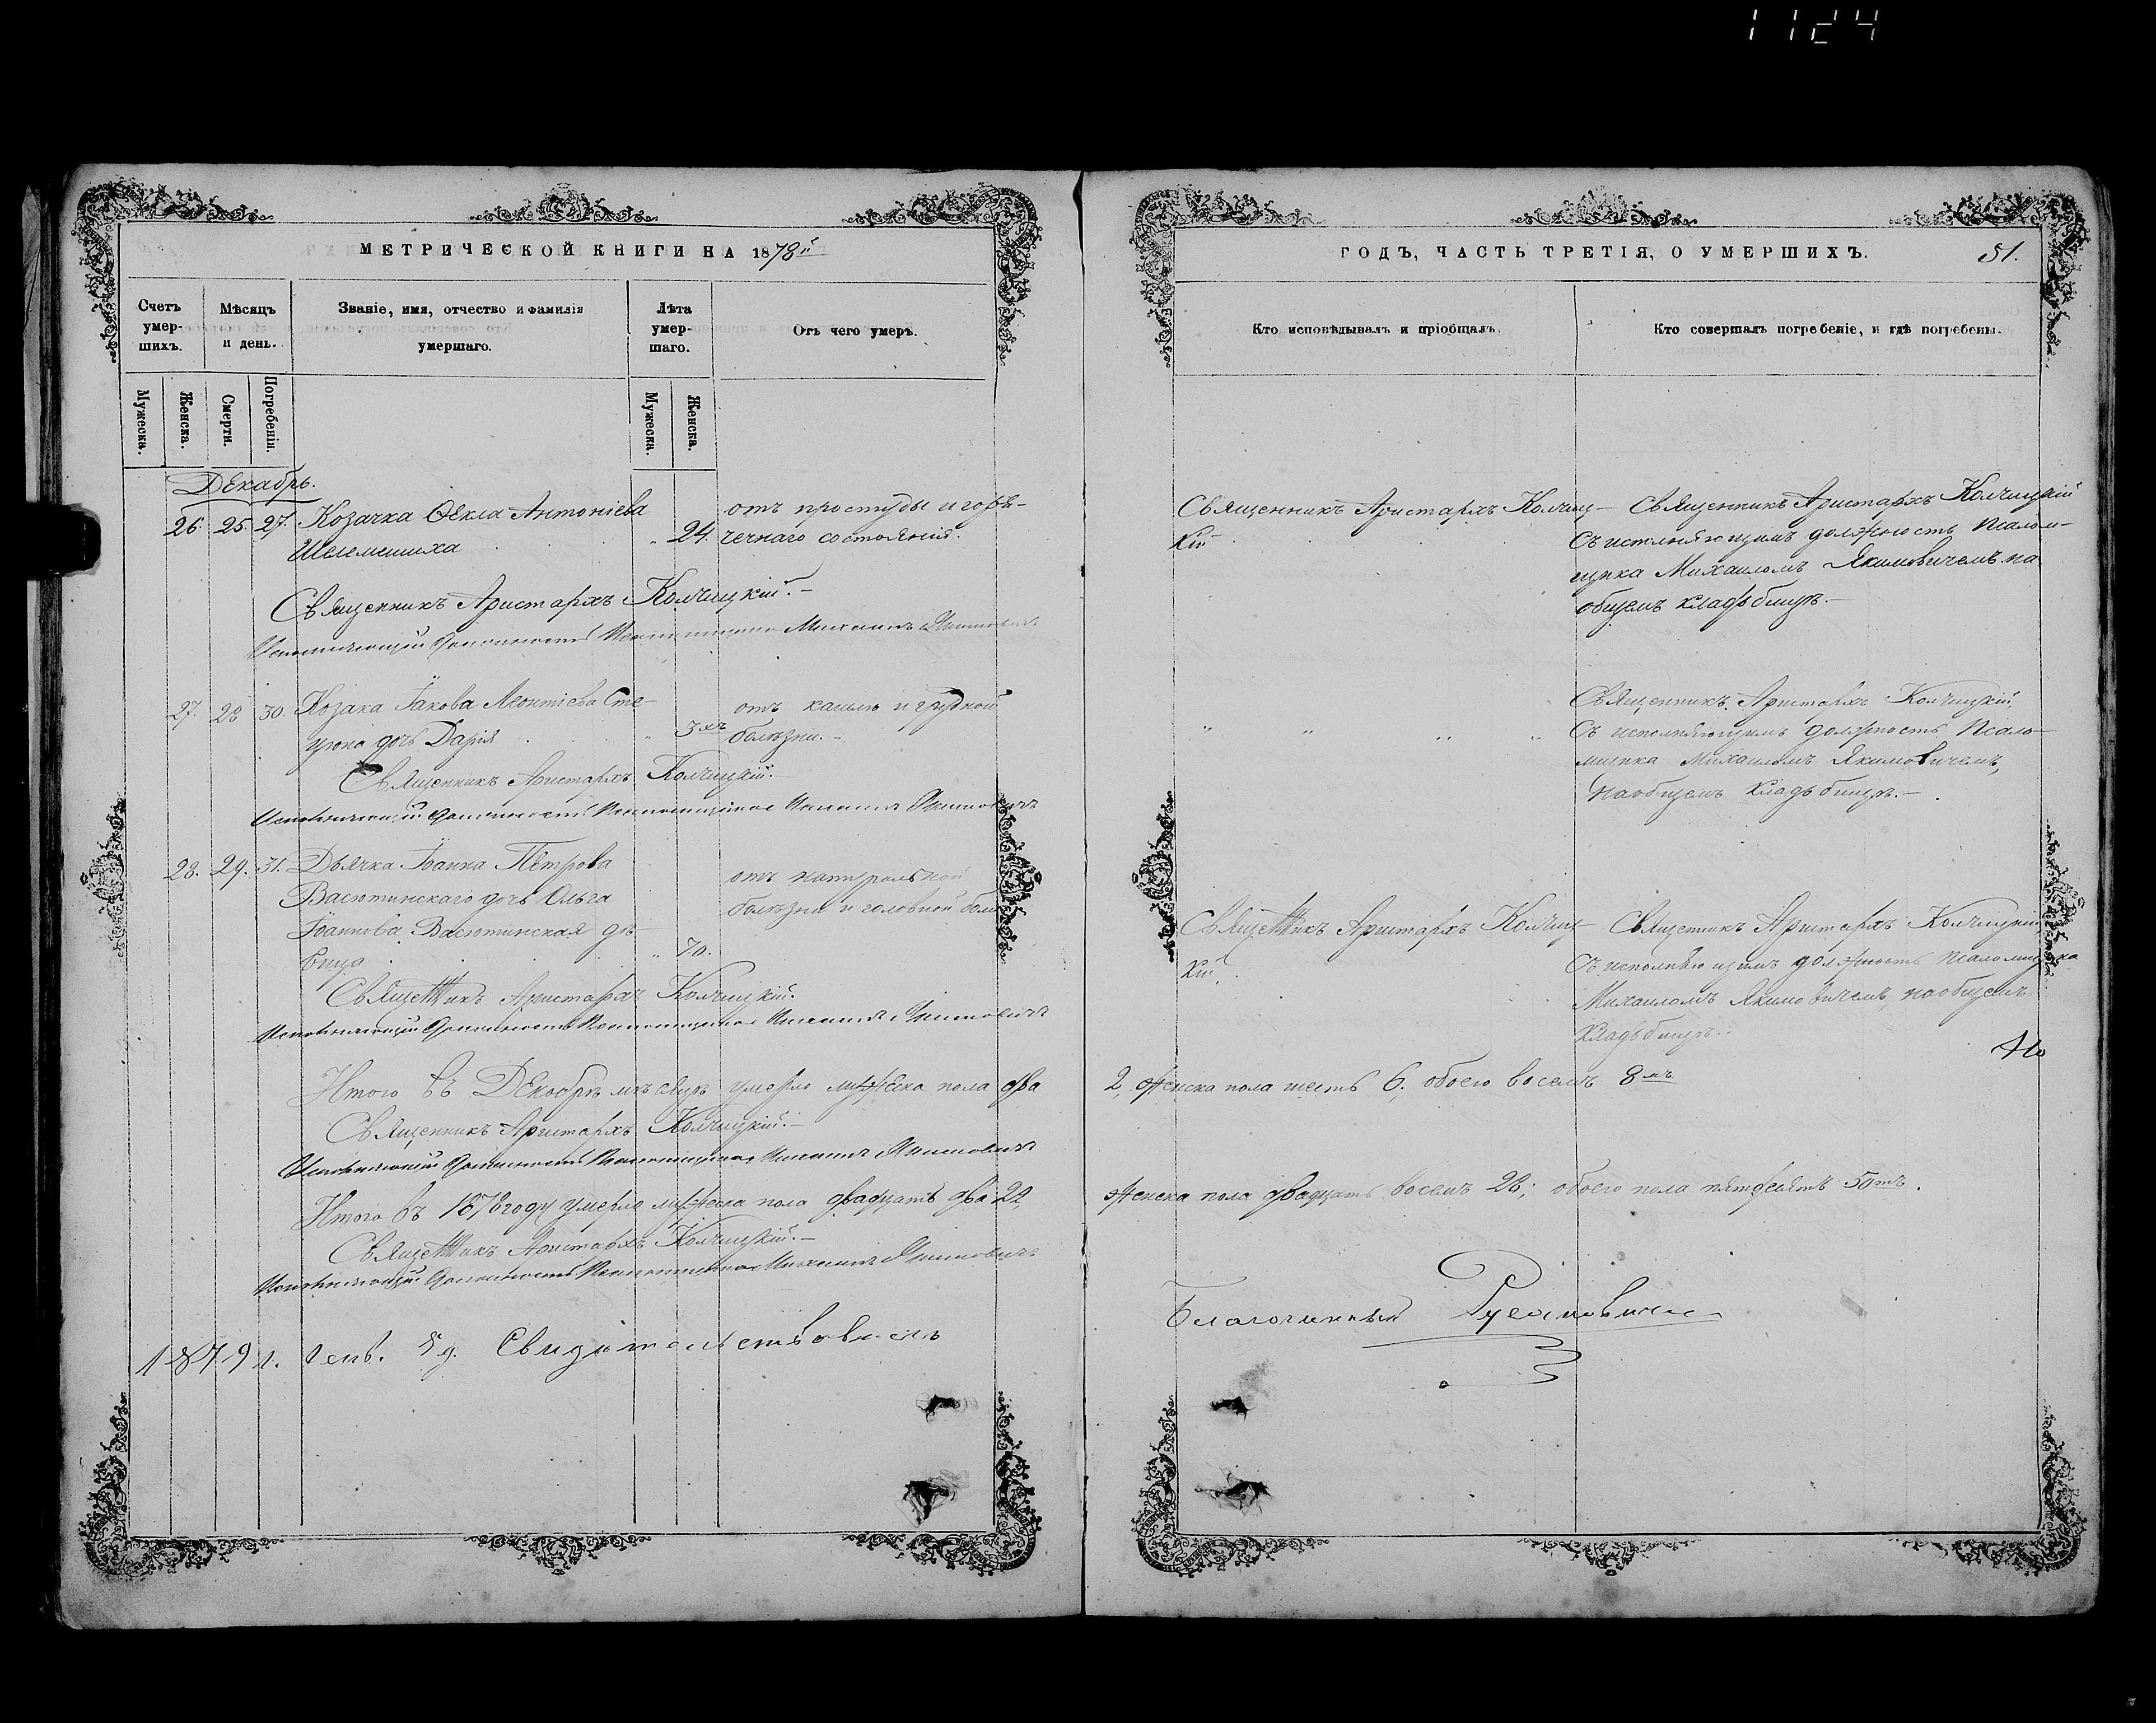 1124
МЕТРИЧЕСКОЙ КНИГИ НА 1878й
Счетъ умер-шихъ.
Мѣсяцъ и день.
Званіе, имя, отчество и фамилія умершаго.
Лѣта умер-шаго.
Отъ чего умеръ.
Мужеска.
Женска.
Смерти.
Погребенія.
Мужеска.
Женска.
Декабрь.
26. 25. 27. Козачка Ѳекла Антоніева
24.
отъ простуды и горя-
чечнаго состоянія.
Священникъ Аристархъ Колчицкій.-
Исполняющій должность Псаломщика Михаилъ Якимовичъ
27. 28 30. Козака Іакова Леонтіева Сте-
цюна дочь Дарія
3хъ
отъ кашлю и грудной
болѣзни.-
Священникъ Аристархъ Колчицкій.-
Исполняющій должность Псаломщика Михаилъ Якимовичъ
28. 29. 31. Дьячка Іоанна Петрова
Васютинскаго дочь Ольга
Іоаннова Васютинская дѣ-
вица " 70.
отъ натуральной
болѣзни и головной боли
Священникъ Аристархъ Колчицкій.
Исполняющій должность Псаломщика Михаилъ Якимовичъ
Итого въ Декабрѣ мѣсяцѣ умерло мужеска пола два
Священникъ Аристархъ Колчицкій.-
Исполняющій должность Псаломщика Михаилъ Якимовичъ
Итого въ 1878 году умерло мужеска пола двадцать два 22,
Священникъ Аристархъ Колчицкій.-
Исполняющій должность Псаломщика Михаилъ Якимовичъ
1879 г. Генв. д. Свидѣтельствовалъ
ГОДЪ, ЧАСТЬ ТРЕТІЯ, О УМЕРШИХЪ. 51.
Кто исповѣдывалъ и пріобщалъ.
Кто совершалъ погребеніе, и гдѣ погребены.
Священникъ Аристархъ Колчиц-
кій
Священникъ Аристархъ Колчицкій
съ исполняющимъ должность Псалом-
щика Михаиломъ Якимовичемъ на
общемъ кладбищѣ.-
" " " "
Священникъ Аристархъ Колчицкій,
съ исполняющимъ должность Псало-
мщика Михаиломъ Якимовичемъ,
на общемъ кладбищѣ.-
Священникъ Аристархъ Колчиц-
кій.
Священникъ Аристархъ Колчицкій,
съ исполняющимъ должность Псаломщика
Михаиломъ Якимовичемъ, на общемъ
кладбищѣ.-
2, женска пола шесть 6; обоего восемъ 8мъ
женска пола двадцать восемъ 28; обоего пола пятдесятъ 50тъ.
Благочинный